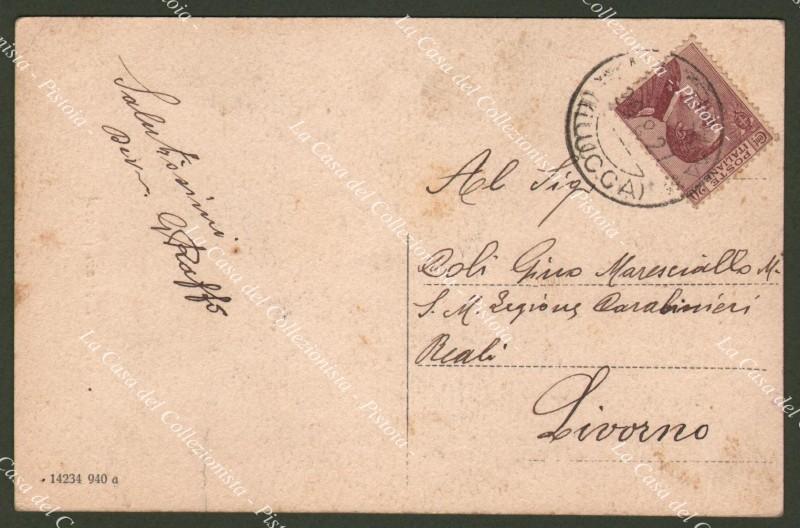 Salutissimi
G Raffo
Al Sig.
Doli Gino Maresciallo M.
S. M. Legione Carabinieri
Reali
Livorno
POSTE
ITALIANE
(LUCCA)
14234 940 a
La Casa del Collezionista - Pistoia